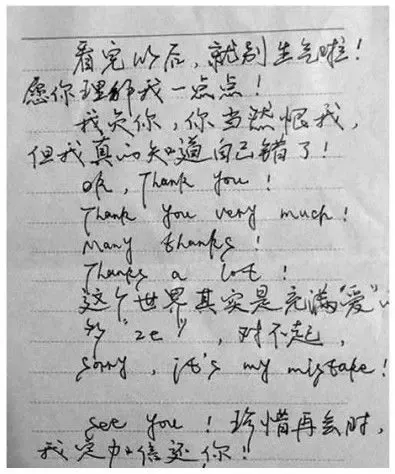 看完以后，就别生气啦！
愿你理解我一点点！
我欠你，你当然恨我，
但我真的知道自己错了！
OK, Thank you!
Thank you very much!
Many thanks!
Thanks a lot!
这个世界其实是充满“爱”
与“ze”，对不起，
Sorry, it's my mistake!
See you! 珍惜再会时，
我定加倍还你！